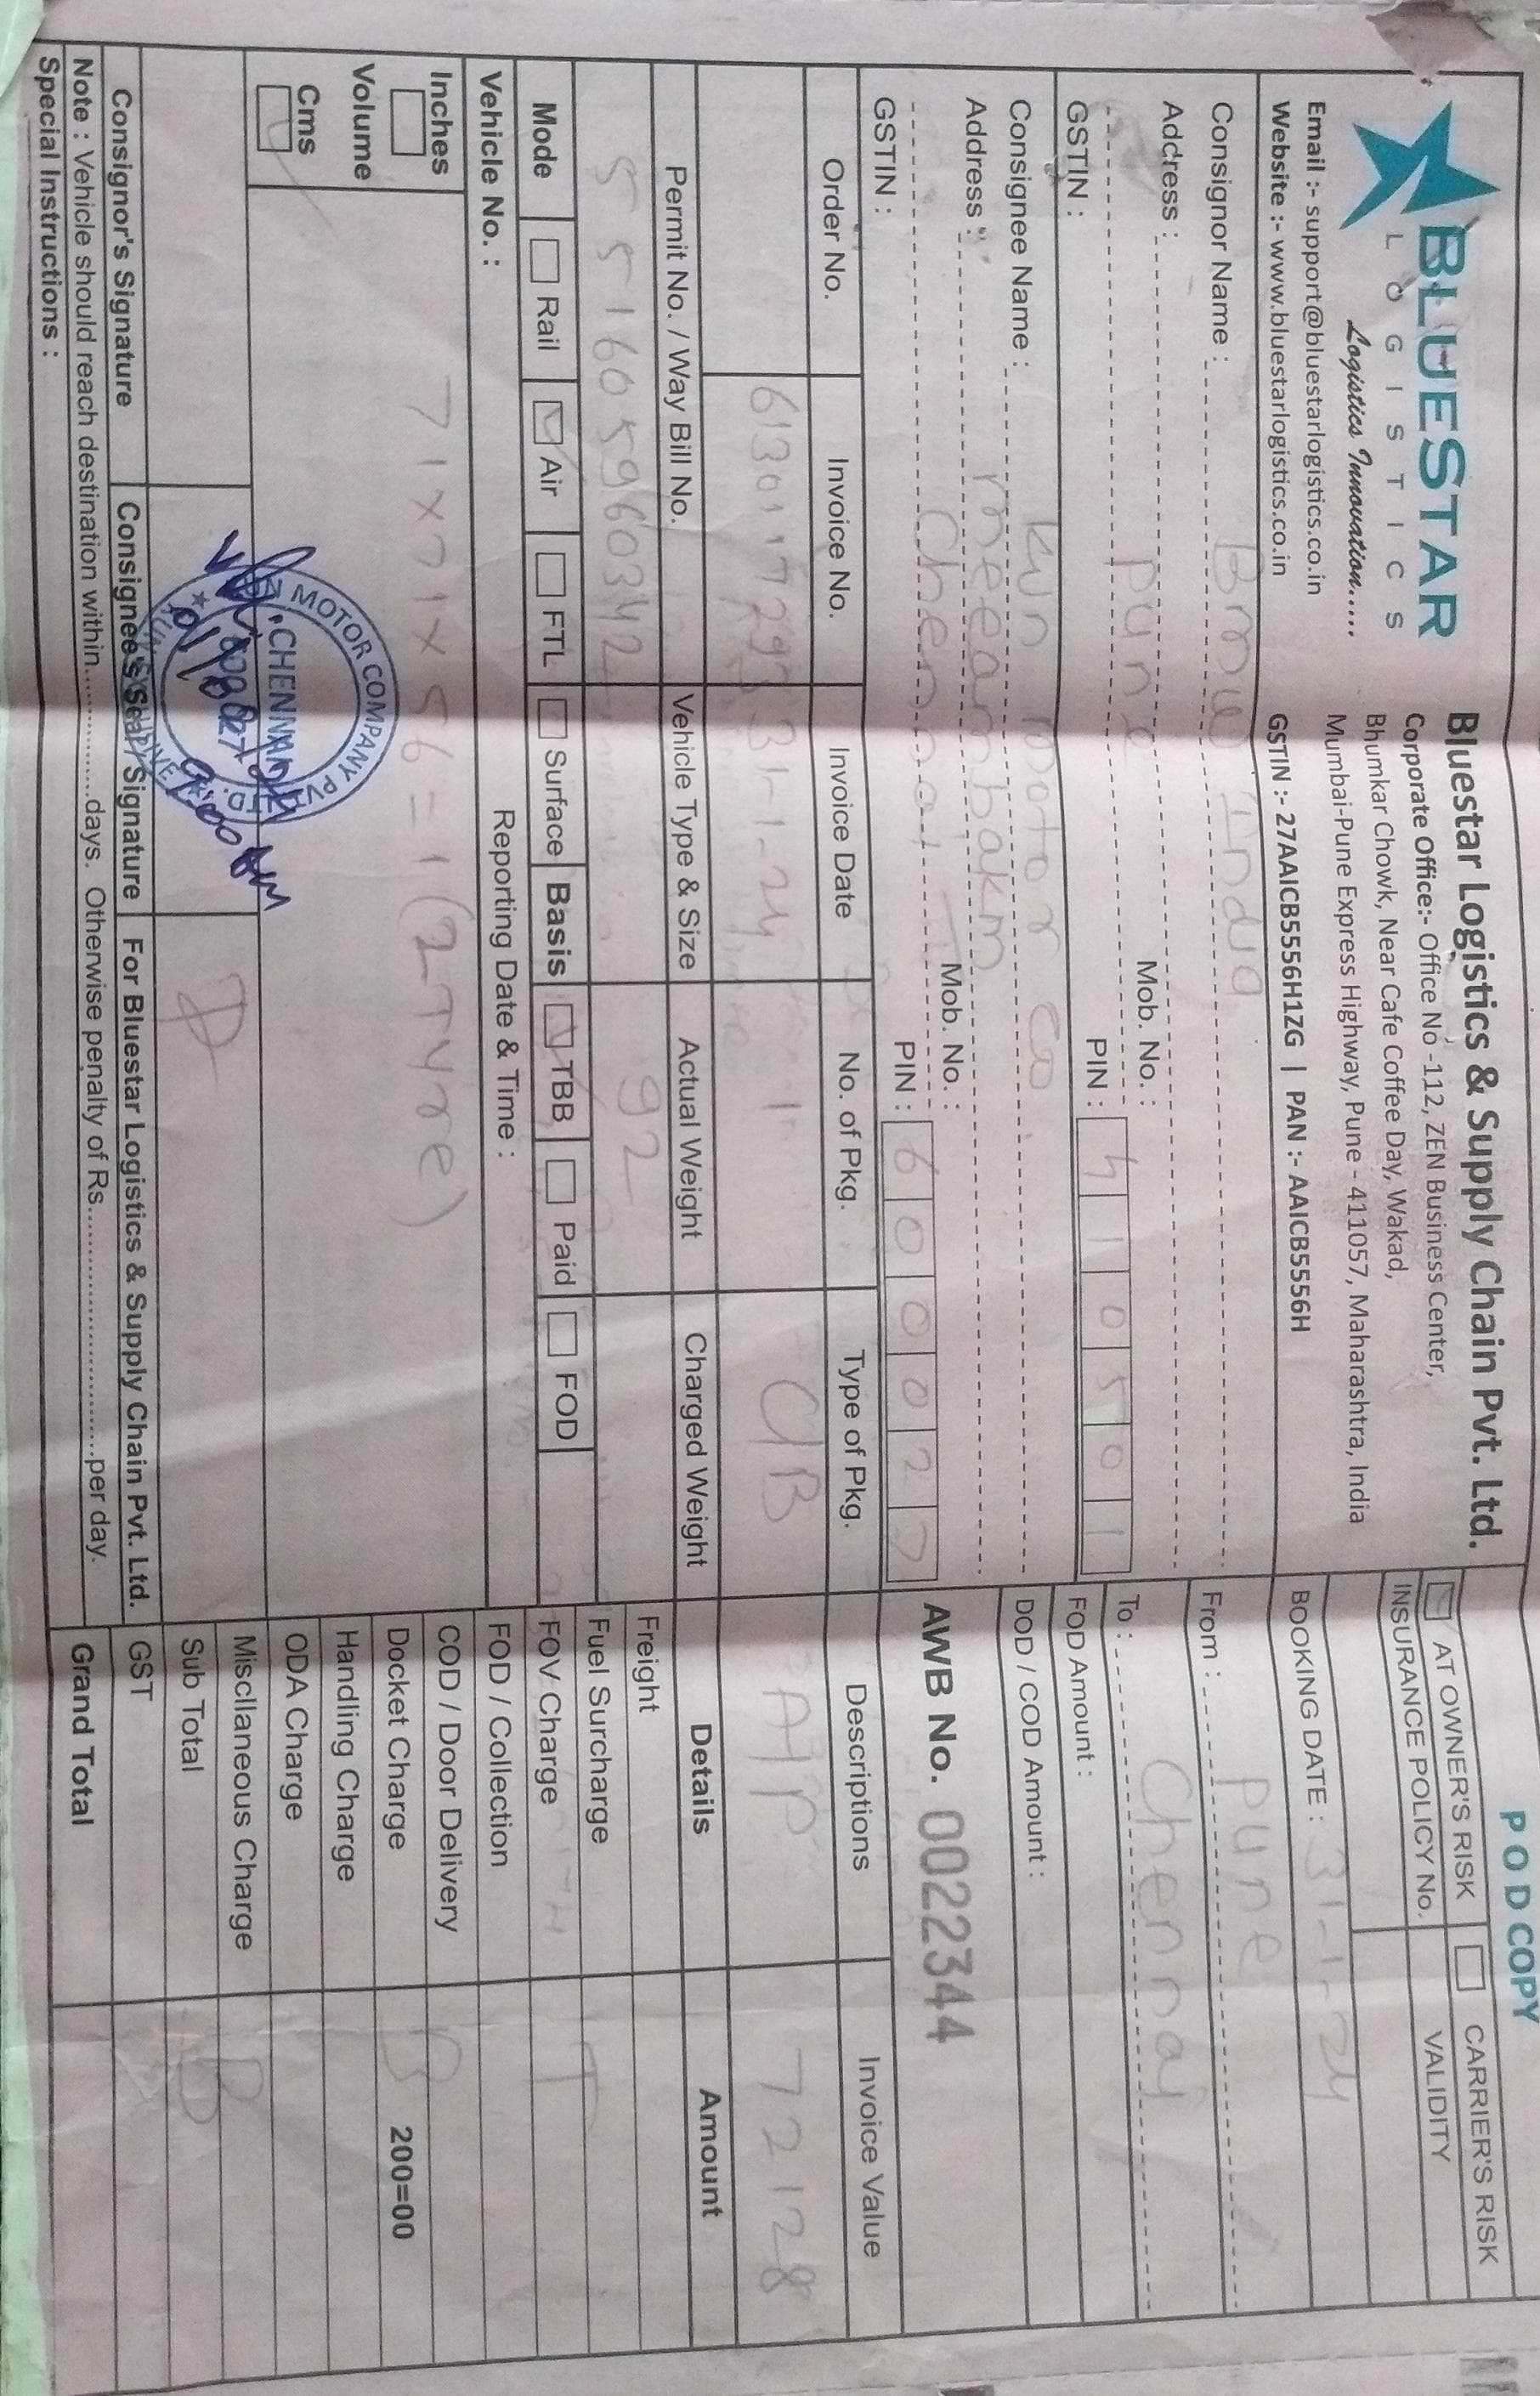 POD COPY
BLUESTAR
LOGISTICS
Logistics Innovation.....
Email :- support@bluestarlogistics.co.in
Website :- www.bluestarlogistics.co.in
Bluestar Logistics & Supply Chain Pvt. Ltd.
Corporate Office:- Office No -112, ZEN Business Center,
Bhumkar Chowk, Near Cafe Coffee Day, Wakad,
Mumbai-Pune Express Highway, Pune - 411057, Maharashtra, India
GSTIN :- 27AAICB5556H1ZG | PAN :- AAICB5556H
AT OWNER'S RISK CARRIER'S RISK
INSURANCE POLICY No. VALIDITY
BOOKING DATE : 31-1-24
From : Pune
To : Chennai
FOD Amount :
DOD / COD Amount :
AWB No. 0022344
Consignor Name : BMW India
Address :
Pune Mob. No. :
PIN : 410501
GSTIN :
Consignee Name : Kun Motor Co.
Address : meeambakm
Chennai Mob. No. :
PIN : 600027
GSTIN :
Order No. Invoice No. Invoice Date No. of Pkg. Type of Pkg. Descriptions Invoice Value
31-1-24 1 C/B A/P 72128
Permit No. / Way Bill No. Vehicle Type & Size Actual Weight Charged Weight
551605960342 92
Mode Rail Air FTL Surface Basis TBB Paid FOD
Vehicle No. : Reporting Date & Time :
Inches
Volume
Cms
71x71x56=1(2Tyre)
Details Amount
Freight
Fuel Surcharge
FOV Charge T
FOD / Collection
COD / Door Delivery
Docket Charge B 200=00
Handling Charge
ODA Charge
Miscllaneous Charge B
Sub Total
GST
Grand Total
KUN MOTOR COMPANY PVT. LTD.
CHENNAI
600 027
KUN EXCLUSIVE
9:00 Am
Consignor's Signature
Consignee's Seal / Signature
For Bluestar Logistics & Supply Chain Pvt. Ltd.
Note : Vehicle should reach destination within...............days. Otherwise penalty of Rs.............................per day.
Special Instructions :